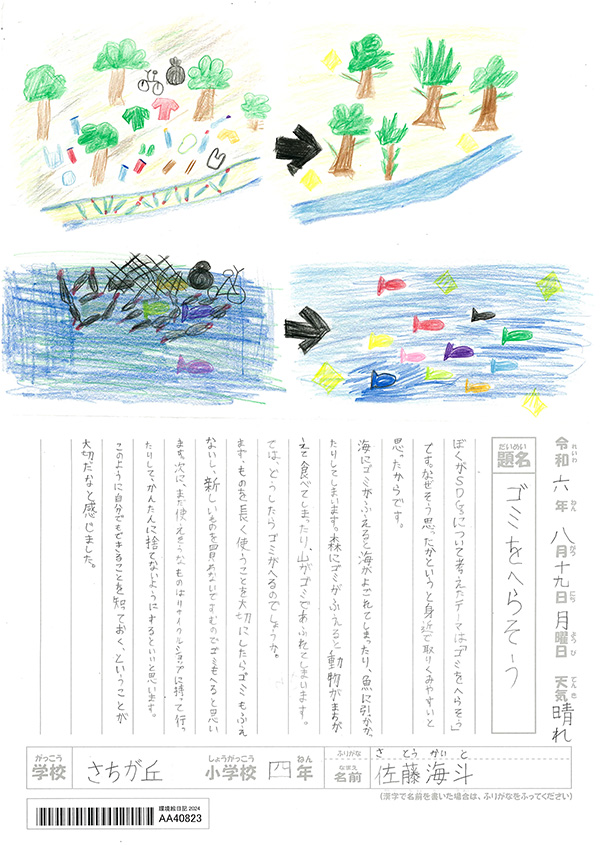 令和六年八月十九日月曜日 天気 晴れ
れいわ ねん がつ にち ようび てんき
だいめい
題名 ゴミをへらそう
ぼくがSDGsについて考えたテーマは「ゴミをへらそう」
です。なぜそう思ったかというと身近で取りくみやすいと
思ったからです。
海にゴミがふえると海がよごれてしまったり、魚に引っかか
たりしてしまいます。森にゴミがふえると動物がまちが
えて食べてしまったり、山がゴミであふれてしまいます。
では、どうしたらゴミがへるのでしょうか。
ます、ものを長く使うことを大切にしたらゴミもふえ
ないし、新しいものを買わないですむのでゴミもへると思い
ます。次に、まだ使えそうなものはリサイクルショップに持って行っ
たりして、かんたんに捨てないようにするといいと思います。
このように自分でもできることを知っておく、ということが
大切だなと感じました。
がっこう しょうがっこう ねん ふりがな さとう かいと
学校 さちが丘 小学校 四年 なまえ 名前 佐藤海斗
(漢字で名前を書いた場合は、ふりがなをふってください)
環境絵日記 2024
AA40823